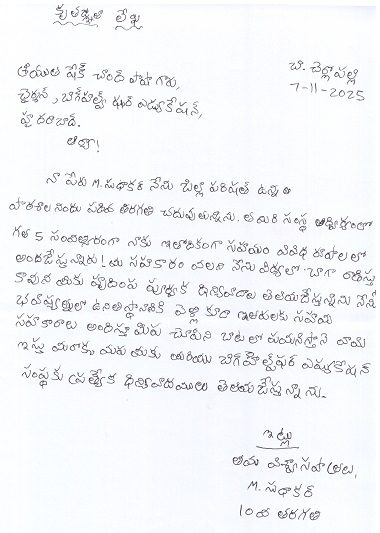 కృతజ్ఞతా లేఖ
బి. చెర్లోపల్లి
7-11-2025
ఆయుల షేక్ చాంద్ పాషా గారు,
ఛైర్మన్, బిగ్‌హెల్ప్ ఫర్ ఎడ్యుకేషన్,
హైదరాబాద్.
ఆర్యా!
నా పేరు M. సుధాకర్ నేను జిల్లా పరిషత్ ఉన్నత
పాఠశాల నందు పదవ తరగతి చదువుతున్నాను. తమరి సంస్థ ఆధ్వర్యంలో
గత 5 సంవత్సరాలుగా నాకు ఇతోధికంగా సహాయం వివిధ రూపాలలో
అందజేస్తున్నారు! మీ సహకారం వలన నేను విద్యలో బాగా రాణిస్తు
కావున మీకు హృదయ పూర్వక ధన్యవాదాలు తెలియజేస్తున్నాను నేను
భవిష్యత్తులో ఉన్నతస్థానానికి వెళ్లా కూడా ఇతరులకు సహాయ
సహకారాలు అందిస్తూ మీరు చూపిన బాటలో పయనిస్తానని హామీ
ఇస్తూ మరొక్క మారు మీకు మరియు బిగ్‌హెల్ప్‌ఫర్ ఎడ్యుకేషన్
సంస్థకు ప్రత్యేక ధన్యవాదములు తెలియజేస్తున్నాను.
ఇట్లు
తమ విశ్వాసపాత్రులు,
M. సుధాకర్
10వ తరగతి